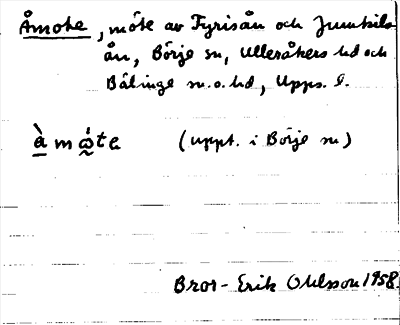 Åmote, möte av Fyrisån och Jumkils-
ån, Börje sn, Ulleråkers hd och
Bälinge sn.o.hd, Upps. l.
àmω̇te (uppt. i Börje sn)
Bror-Erik Ohlsson 1958.